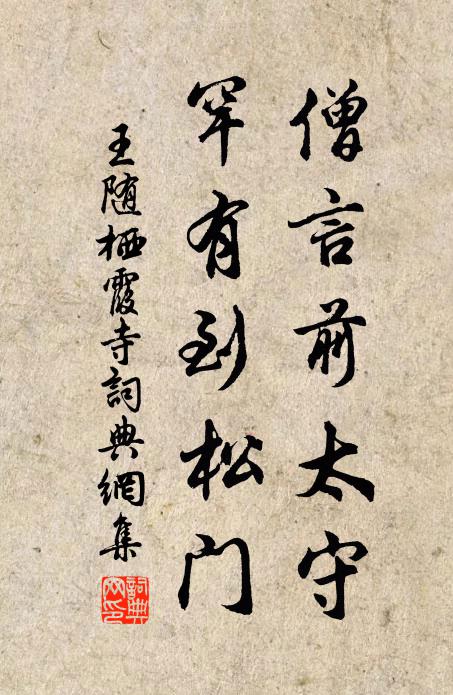 僧言前太守
罕有到松門
王随栖霞寺詞典網集
詞典网印